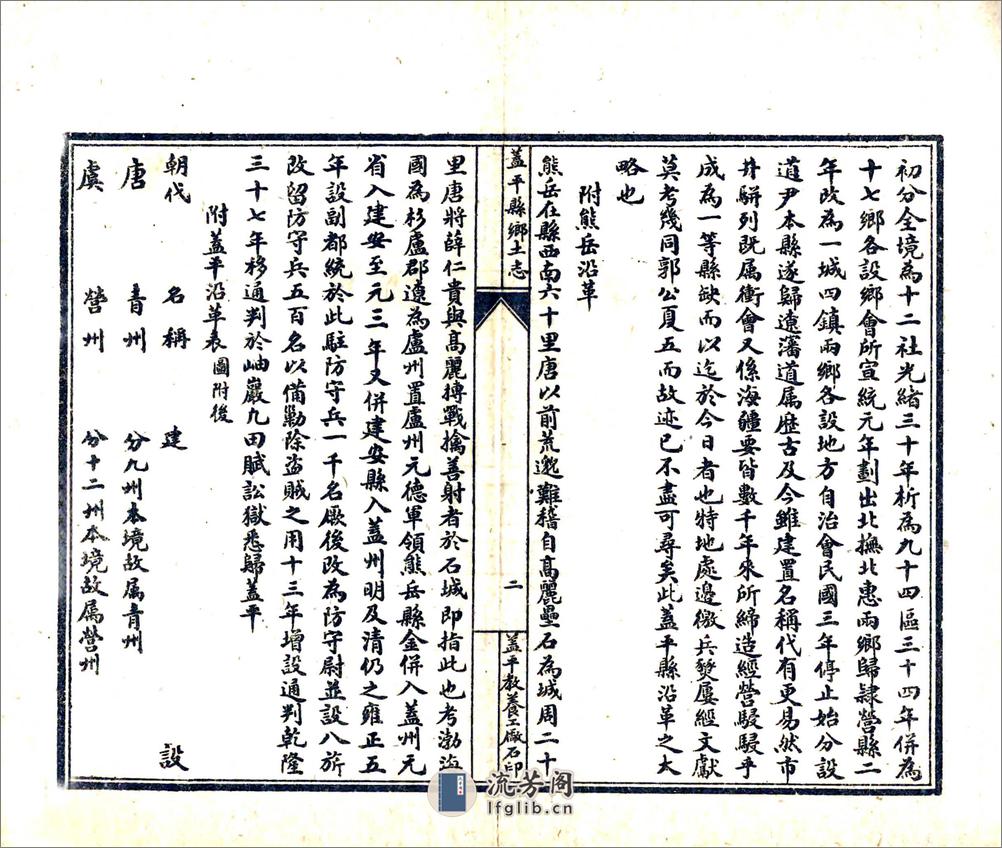 初分全境為十二社光緒三十年析為九十四區三十四年併為
十七鄉各設鄉會所宣統元年劃出北撫北惠兩鄉歸隸營縣二
年改為一城四鎮兩鄉各設地方自治會民國三年停止始分設
道尹本縣遂歸遼瀋道属歷古及今雖建置名稱代有更易然市
井駢列既属衝會又係海疆要皆數千年來所締造經營駸駸乎
成為一等縣缺而以迄於今日者也特地處邊徼兵燹屢經文獻
莫考幾同郭公夏五而故迹已不盡可尋矣此蓋平縣沿革之大
略也
附熊岳沿革
熊岳在縣西南六十里唐以前荒邈難稽自高麗壘石為城周二十
蓋平縣鄉土志
二
蓋平教養工廠石印
里唐將薛仁貴與高麗搏戰擒善射者於石城即指此也考渤海
國為杉盧郡遼為盧州置盧州元德軍領熊岳縣金併入蓋州元
省入建安至元三年又併建安縣入蓋州明及清仍之雍正五
年設副都統於此駐防守兵一千名厥後改為防守尉並設八旂
改留防守兵五百名以備勦除盜賊之用十三年增設通判乾隆
三十七年移通判於岫巖凡田賦訟獄悉歸蓋平
附蓋平沿革表圖附後
朝代 名稱 建 設
唐 青州 分九州本境故属青州
虞 營州 分十二州本境故属營州
流芳阁
lfglib.cn